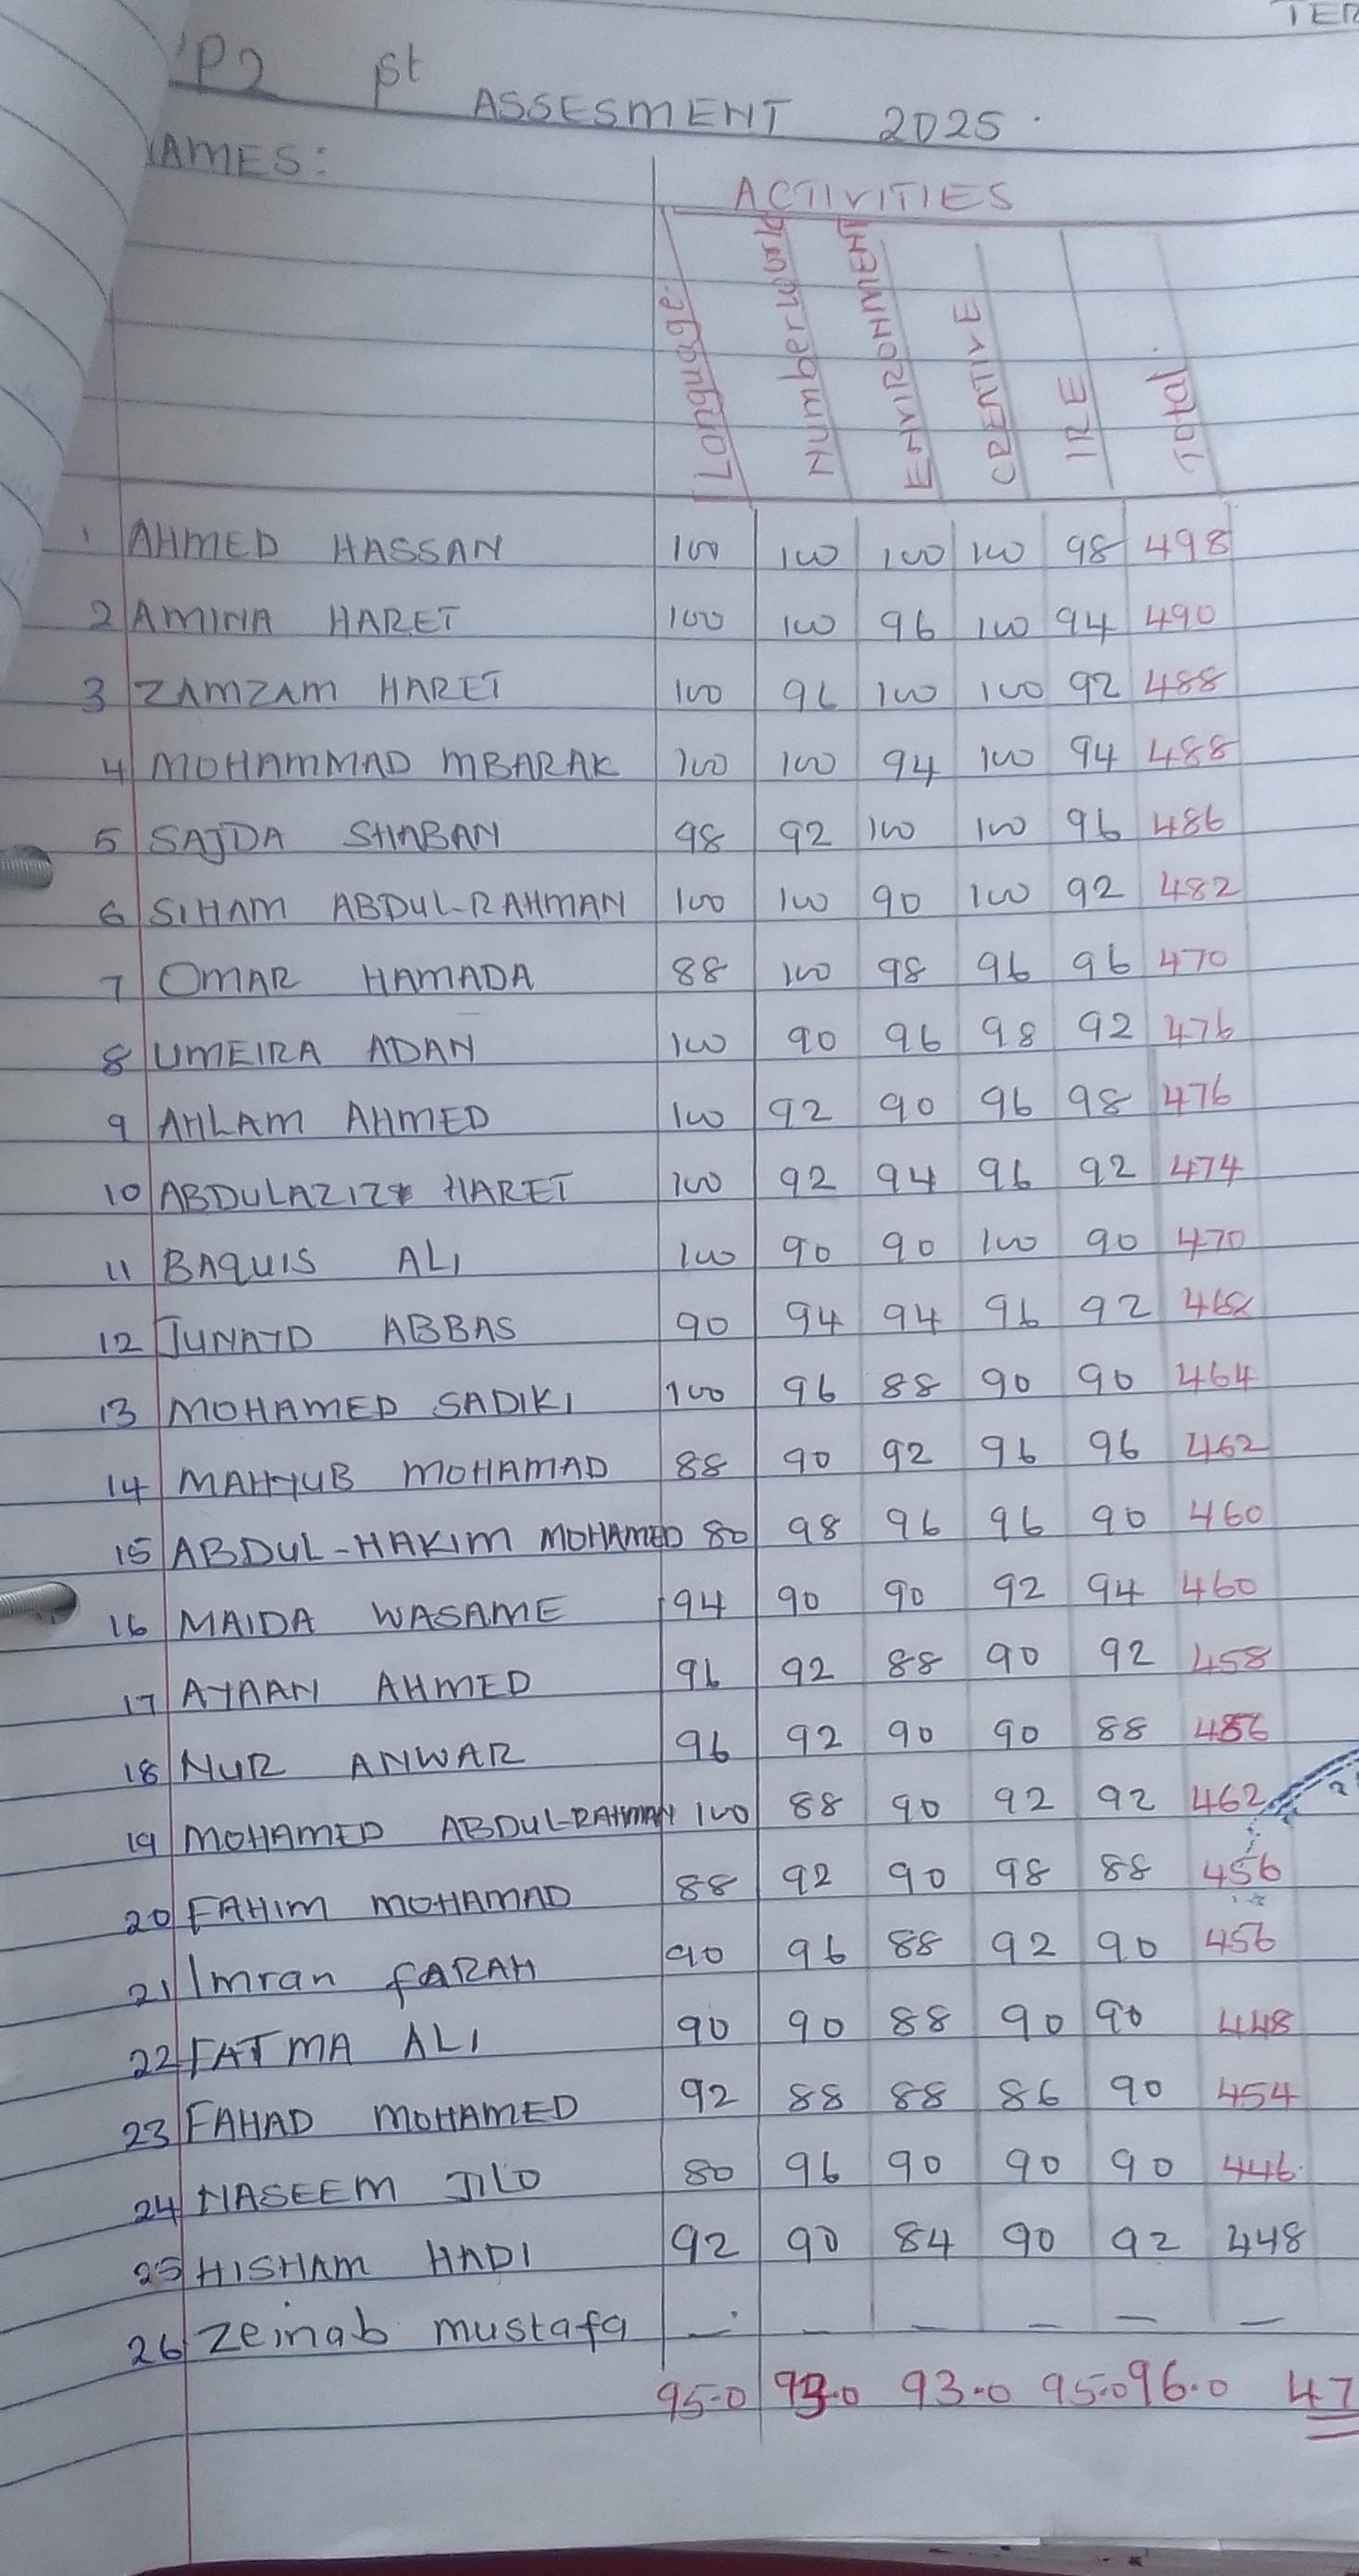 TER
PP2 1st ASSESMENT 2025.
NAMES:
ACTIVITIES
Language Number work ENVIRONMENT CREATIVE IRE Total
1 AHMED HASSAN 100 100 100 100 98 498
2 AMINA HARET 100 100 96 100 94 490
3 ZAMZAM HARET 100 96 100 100 92 488
4 MOHAMMAD MBARAK 100 100 94 100 94 488
5 SAJDA SHABAN 98 92 100 100 96 486
6 SIHAM ABDUL-RAHMAN 100 100 90 100 92 482
7 OMAR HAMADA 88 100 98 96 96 470
8 UMEIRA ADAN 100 90 96 98 92 476
9 AHLAM AHMED 100 92 90 96 98 476
10 ABDULAZIZ HARET 100 92 94 96 92 474
11 BAQUIS ALI 100 90 90 100 90 470
12 JUNAYD ABBAS 90 94 94 96 92 468
13 MOHAMED SADIKI 100 96 88 90 90 464
14 MAHYUB MOHAMAD 88 90 92 96 96 462
15 ABDUL-HAKIM MOHAMED 80 98 96 96 90 460
16 MAIDA WASAME 94 90 90 92 94 460
17 AYAAN AHMED 96 92 88 90 92 458
18 NUR ANWAR 96 92 90 90 88 456
19 MOHAMED ABDUL-RAHMAN 100 88 90 92 92 462
20 FAHIM MOHAMAD 88 92 90 98 88 456
21 Imran FARAH 90 96 88 92 90 456
22 FATMA ALI 90 90 88 90 90 448
23 FAHAD MOHAMED 92 88 88 86 90 454
24 NASEEM JILO 80 96 90 90 90 446
25 HISHAM HADI 92 90 84 90 92 448
26 Zeinab mustafa — — — — — —
95.0 93.0 93.0 95.0 96.0 47